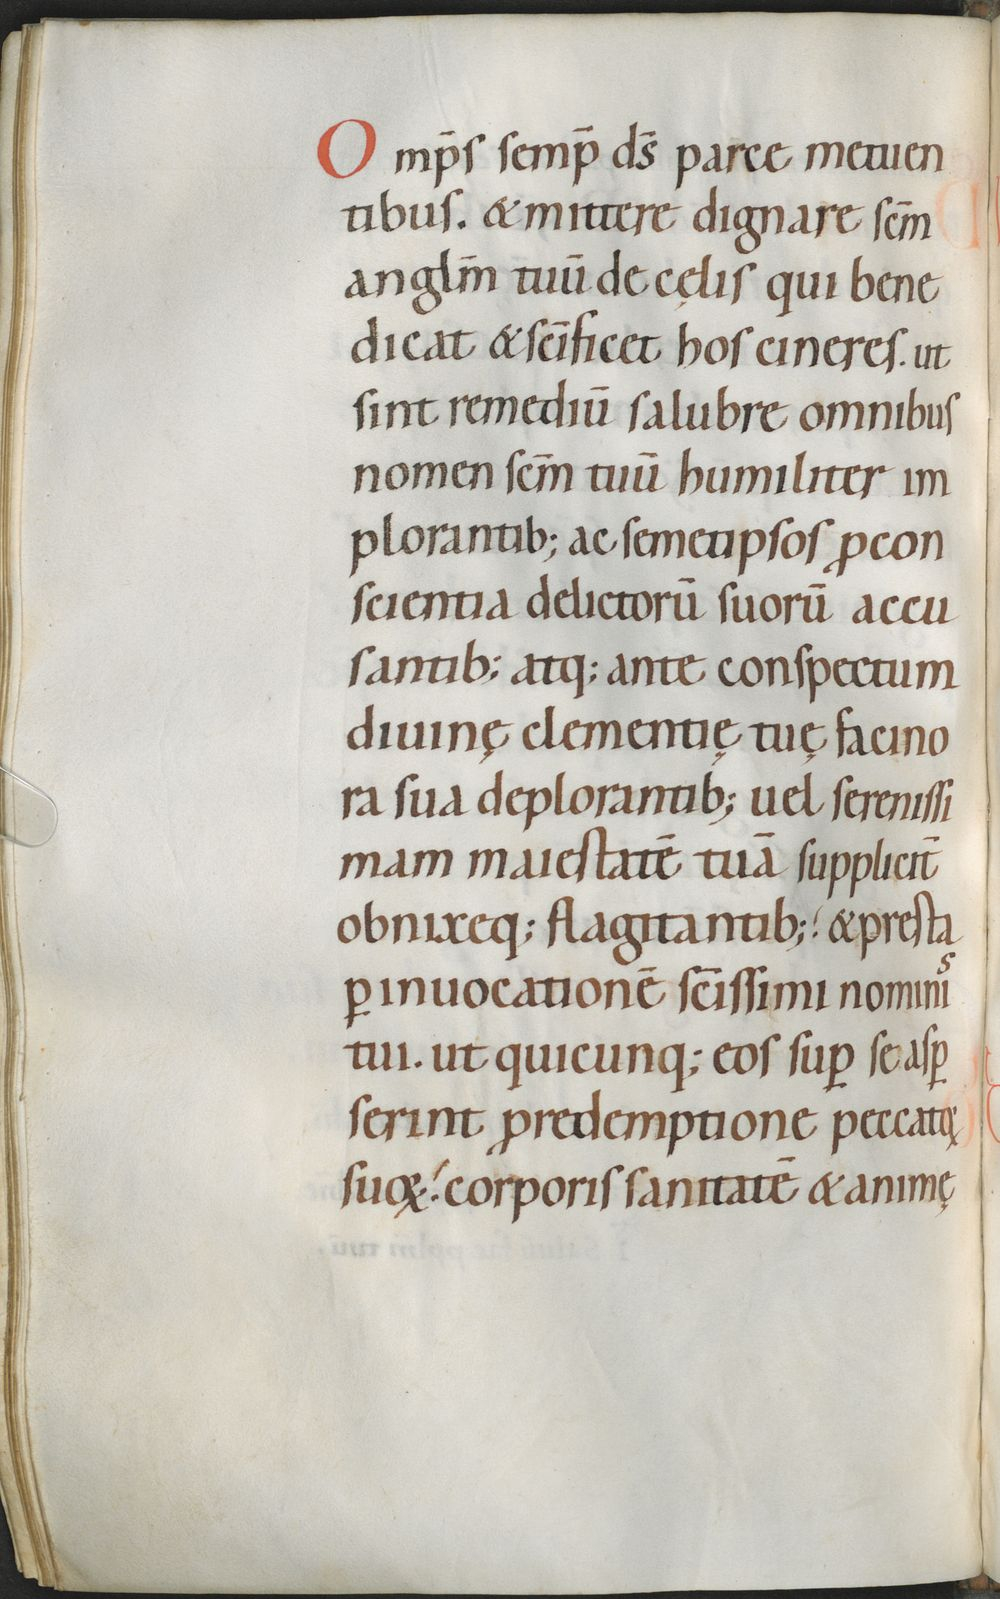 Omp̄s semp̄ ds̄ parce metuen
tibus. & mittere dignare sc̄m
anglm̄ tuū de cęlis qui bene
dicat & sc̄ificet hos cineres. ut
sint remediū salubre omnibus
nomen sc̄m tuū humiliter im
plorantib; ac semetipsos ꝓ con
scientia delictorū suorū accu
santib; atq; ante conspectum
diuinę clementię tuę facino
ra sua deplorantib; uel serenissi
mam maiestatē tuā supplicit̄
obnixeq; flagitantib; & presta
ꝑ inuocationē sc̄issimi nominis
tui. ut quicunq; eos suꝑ se asꝑ
serint ꝓ redemptione peccatoꝝ
suoꝝ. corporis sanitatē & animę